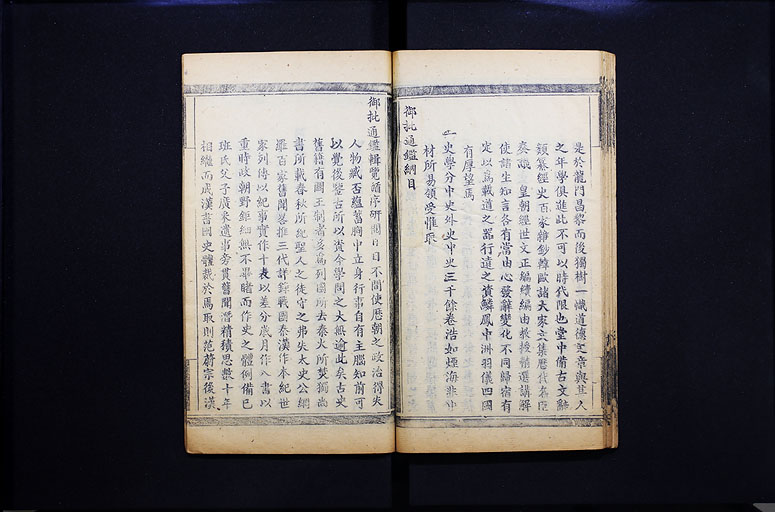 是於龍門昌黎而後獨樹一幟道德文章與其人
之年學俱進此不可以時代限也堂中備古文辭
類纂經史百家雜鈔韓歐諸大家文集歷代名臣
奏議 皇朝經世文正編續編由教授精選講解
使諸生知言各有當由心發辭變化不同歸宿有
定以為載道之器行遠之資鱗鳳中洲羽儀四國
有厚望焉
一史學分中史外史中史三千餘卷浩如煙海非中
材所易領受惟取
御批通鑑綱目
御批通鑑輯覽循序研閱日日不間使歷朝之政治得失
人物臧否蘊蓄胸中立身行事自有主臘知前可
以覺後鑒古所以資今學問之大無逾此矣古史
舊籍有國王制者多為列國所去秦火所焚獨尚
書所載春秋所紀聖人之徒守之弗失太史公網
羅百家舊聞畧推三代詳錄戰國秦漢作本紀世
家列傳以紀事實作十表以差分歲月作八書以
重時政朝野鉅細無不畢賭而作史之體例備已
班氏父子廣采遺事旁貫舊聞潛精積思數十年
相繼而成漢書國史體裁於馬取則范蔚宗後漢